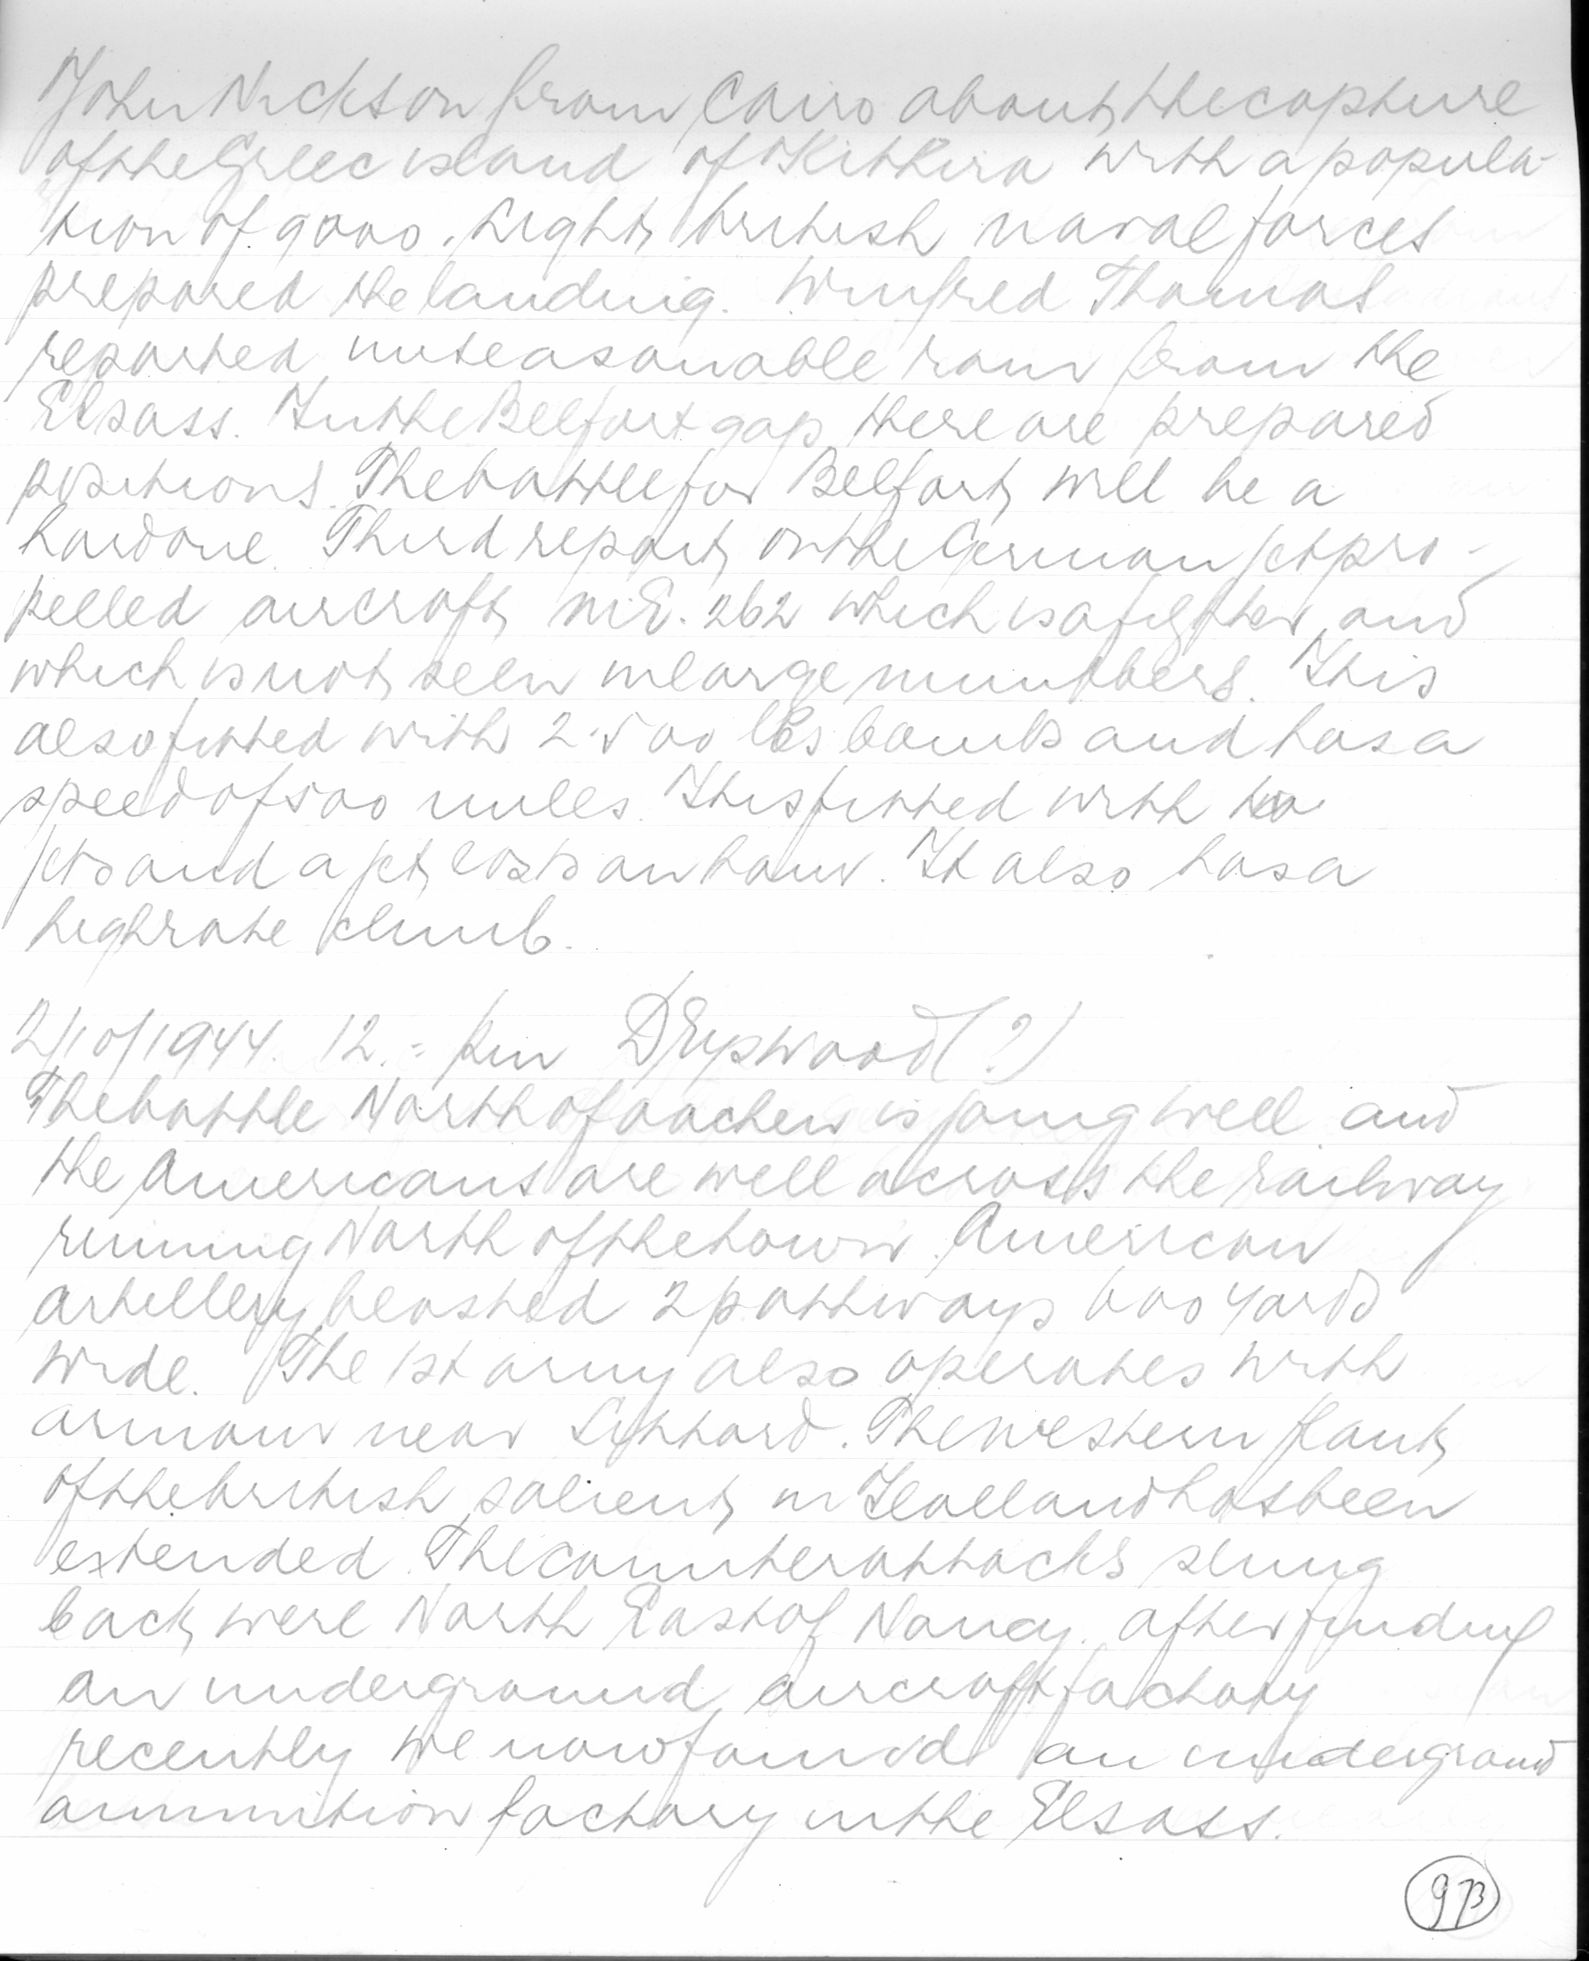 John Nickson from Cairo about the capture
of the Greec island of Kithira with a popula-
tion of 9000. Light british naval forces
prepared the landing. Winfred Thomas
reported unseasonable rain from the
Elsass. In the Belfort gap there are prepared
positions. The battle for Belfort will be a
hard one. Third report on the German jet pro-
pelled aircraft M.E. 262 which is a fighter and
which is not seen in large numbers. It is
also fitted with 2.500 lbs bombs and has a
speed of 500 miles. It is fitted with two
jets and a jet lasts an hour. It also has a
high rate climb.
2/10/1944. 12.= pm D Eyswood (?)
The battle North of aachen is going well and
the Americans are well across the railway
running North of the town. American
artillery blasted 2 pathways 600 yards
wide. The 1st army also operates with
armour near Sittard. The western flank
of the british salient in Holland has been
extended. The counterattacks slung
back were North East of Nancy. after finding
an underground aircraft factory
recently we now found an underground
ammunition factory in the Elsass.
973